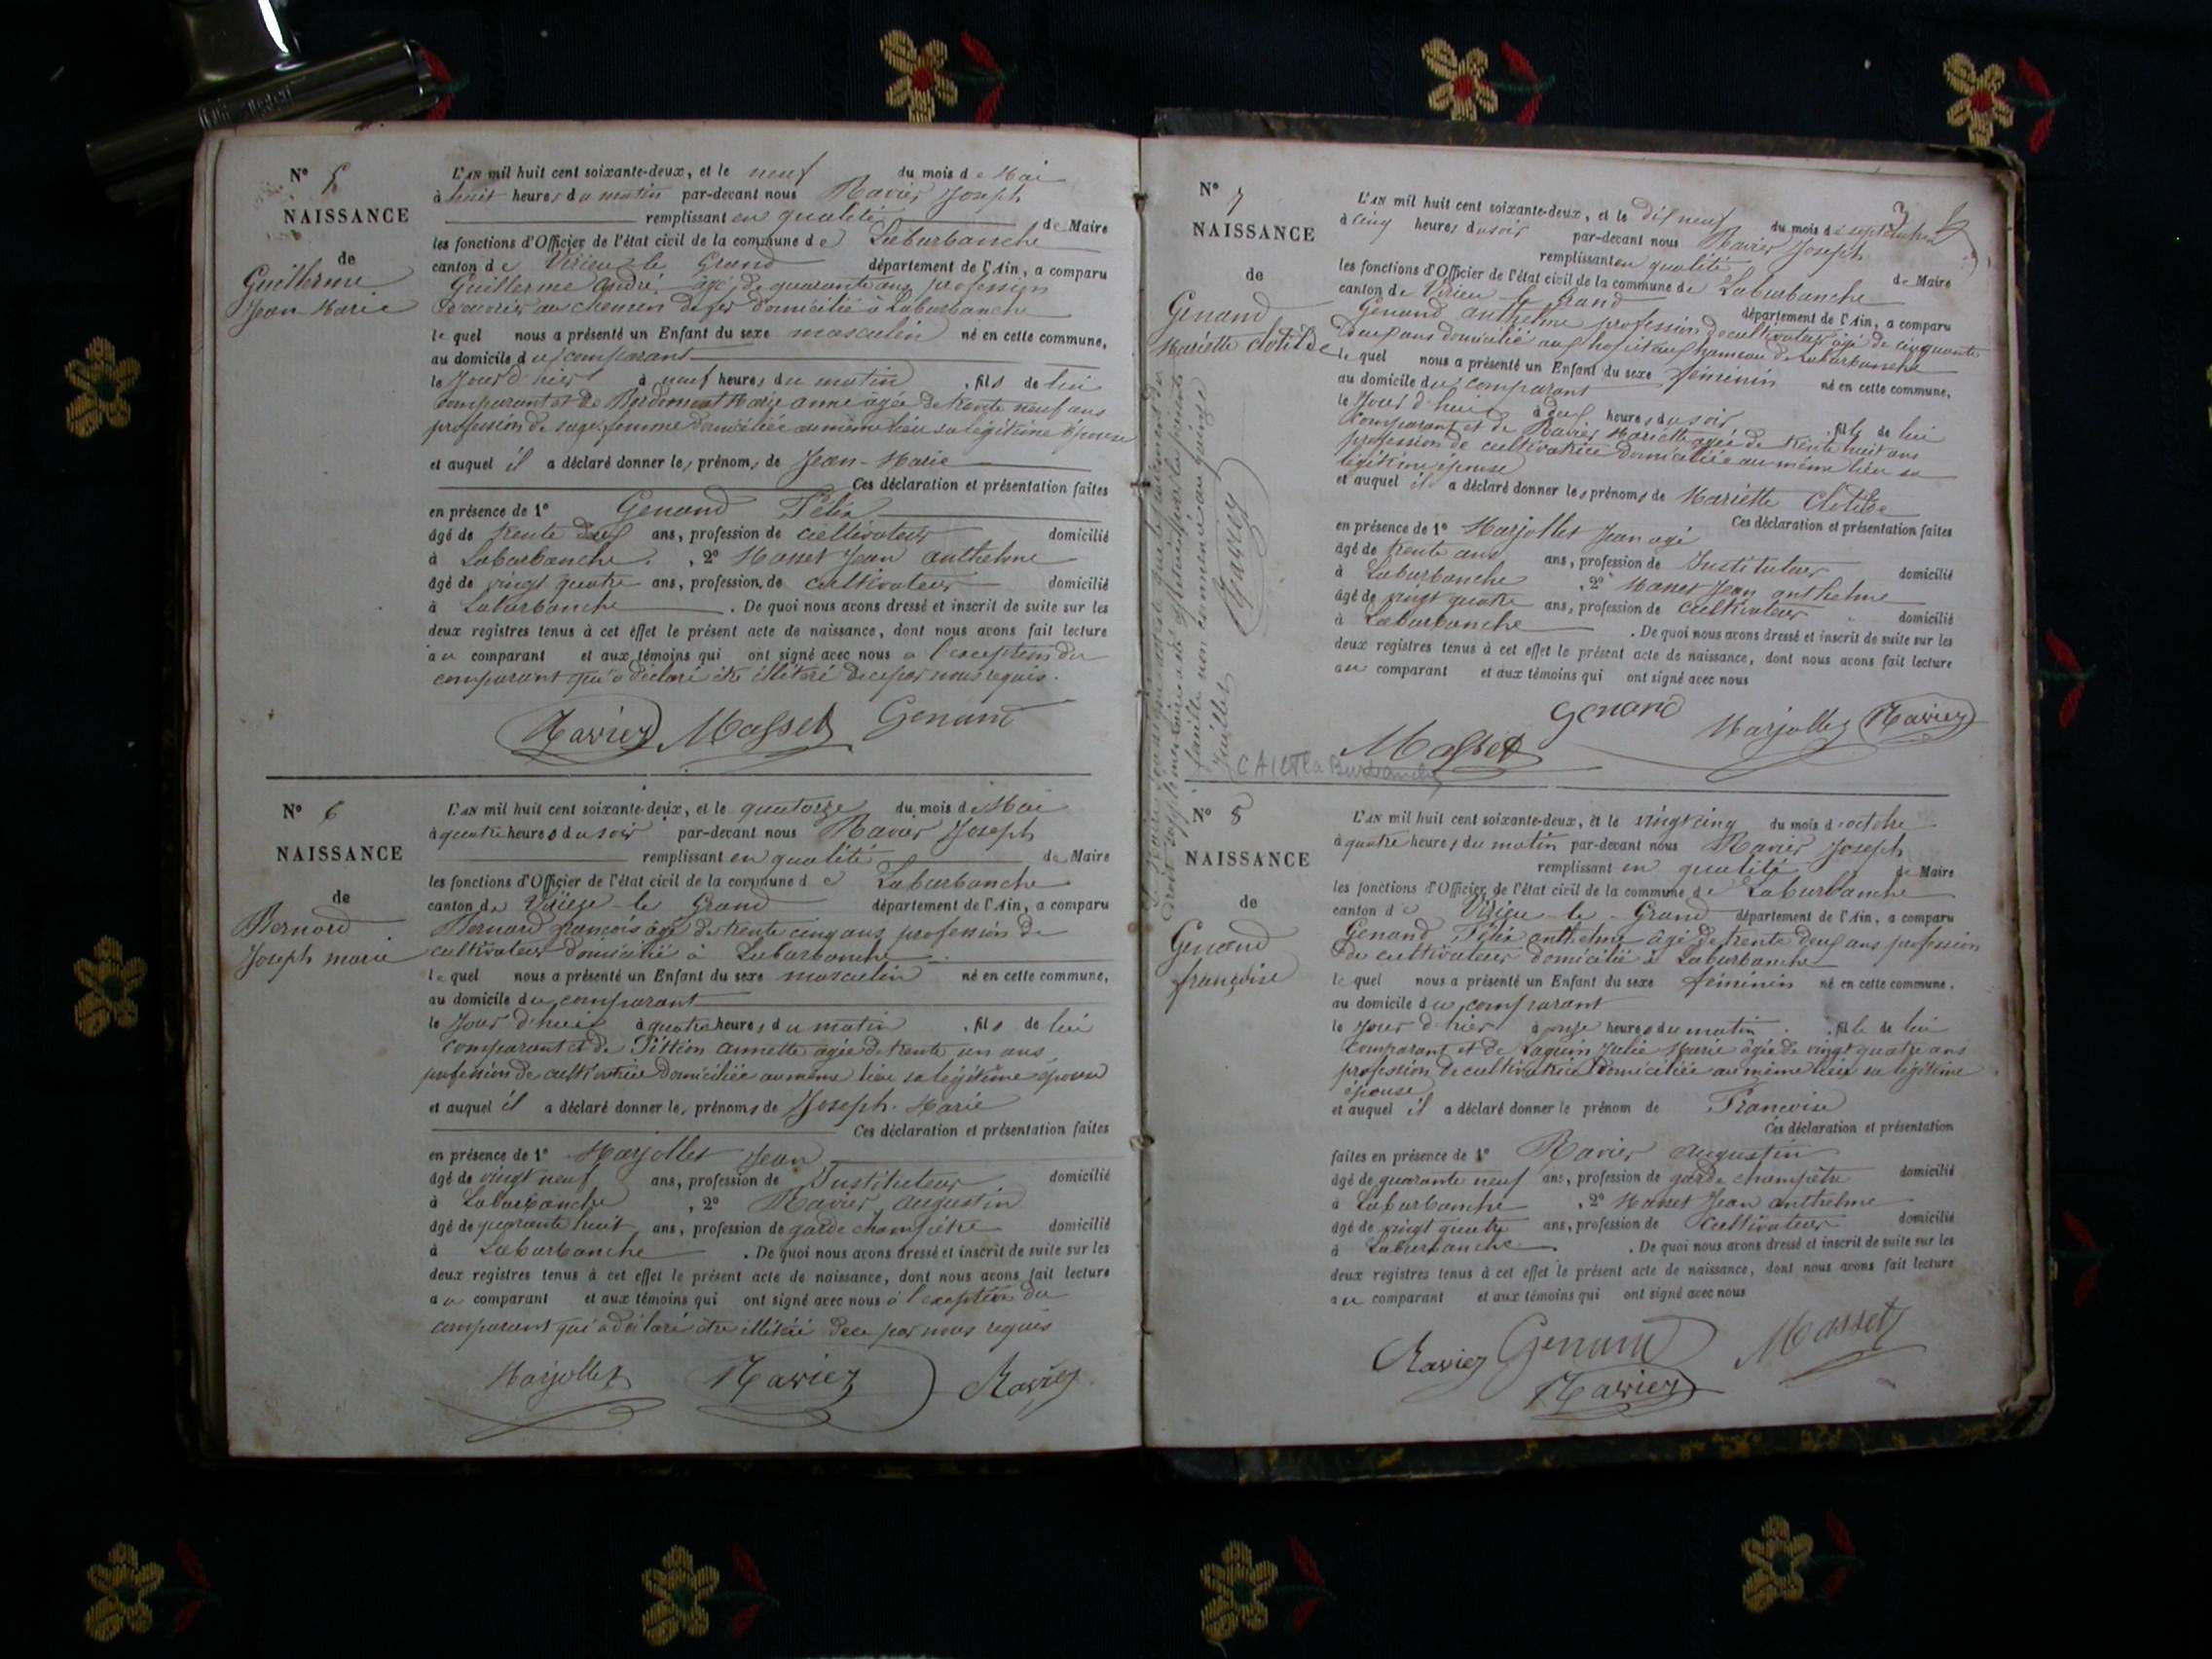 N° 5
NAISSANCE
de
Guillerme
Jean Marie
L'AN mil huit cent soixante-deux, et le neuf du mois de Mai
à huit heures du matin par-devant nous Ravier Joseph
remplissant en qualité de Maire
les fonctions d'Officier de l'état civil de la commune de Laburbanche
canton de Virieu le Grand département de l'Ain, a comparu
Guillerme andré âgé de quarante ans profession
d'ouvrier au chemin de fer domicilié à Laburbanche
le quel nous a présenté un Enfant du sexe masculin né en cette commune,
au domicile du comparant
le Jour d'hier à neuf heures du matin, fils de lui
comparant et de Marie anne âgée de trente neuf ans
profession de sage femme domiciliée au même lieu sa légitime épouse
et auquel il a déclaré donner les prénoms de Jean-Marie
Ces déclaration et présentation faites
en présence de 1° Genand Félix
âgé de trente deux ans, profession de cultivateur domicilié
à Laburbanche, 2° Masset Jean anthelme
âgé de vingt quatre ans, profession de cultivateur domicilié
à Laburbanche. De quoi nous avons dressé et inscrit de suite sur les
deux registres tenus à cet effet le présent acte de naissance, dont nous avons fait lecture
au comparant et aux témoins qui ont signé avec nous à l'exception du
comparant qui a déclaré être illitéré de ce par nous requis.
Ravier Masset Genand
N° 6
NAISSANCE
de
Bernard
Joseph marie
L'AN mil huit cent soixante-deux, et le quatorze du mois de Mai
à quatre heures du soir par-devant nous Ravier Joseph
remplissant en qualité de Maire
les fonctions d'Officier de l'état civil de la commune de Laburbanche
canton de Virieu le Grand département de l'Ain, a comparu
Bernard françois âgé de trente cinq ans profession de
cultivateur domicilié à Laburbanche
le quel nous a présenté un Enfant du sexe masculin né en cette commune,
au domicile du comparant
le Jour d'hui à quatre heures du matin, fils de lui
comparant et de Pittion annette agée de trente un ans,
profession de cultivatrice domiciliée au même lieu sa légitime épouse
et auquel il a déclaré donner les prénoms de Joseph-Marie
Ces déclaration et présentation faites
en présence de 1° Marjollet Jean
âgé de vingt neuf ans, profession de Instituteur domicilié
à Laburbanche, 2° Ravier Augustin
âgé de quarante huit ans, profession de garde champêtre domicilié
à Laburbanche. De quoi nous avons dressé et inscrit de suite sur les
deux registres tenus à cet effet le présent acte de naissance, dont nous avons fait lecture
au comparant et aux témoins qui ont signé avec nous à l'exception du
comparant qui a déclaré être illitéré de ce par nous requis
Marjollet Ravier Ravier
3
N° 7
NAISSANCE
de
Genand
Mariette clotilde
L'AN mil huit cent soixante-deux, et le dix neuf du mois de septembre
à cinq heures du soir par-devant nous Ravier Joseph
remplissant en qualité de Maire
les fonctions d'Officier de l'état civil de la commune de Laburbanche
canton de Virieu le Grand département de l'Ain, a comparu
Genand anthelme profession de cultivateur âgé de cinquante
deux ans domicilié aux hopitaux hameau de Laburbanche
le quel nous a présenté un Enfant du sexe féminin né en cette commune,
au domicile du comparant
le Jour d'hui à deux heures du soir, fille de lui
comparant et de Ravier Mariette agée de trente huit ans
profession de cultivatrice domiciliée au même lieu sa
légitime épouse
et auquel il a déclaré donner les prénoms de Mariette Clotilde
Ces déclaration et présentation faites
en présence de 1° Marjollet Jean agé
âgé de trente ans ans, profession de Instituteur domicilié
à Laburbanche, 2° Masset Jean anthelme
âgé de vingt quatre ans, profession de cultivateur domicilié
à Laburbanche. De quoi nous avons dressé et inscrit de suite sur les
deux registres tenus à cet effet le présent acte de naissance, dont nous avons fait lecture
au comparant et aux témoins qui ont signé avec nous
Genand Marjollet Ravier
Masset
Ravier
N° 8
NAISSANCE
de
Genand
françoise
L'AN mil huit cent soixante-deux, et le vingt cinq du mois d'octobre
à quatre heures du matin par-devant nous Ravier Joseph
remplissant en qualité de Maire
les fonctions d'Officier de l'état civil de la commune de Laburbanche
canton de Virieu-le-Grand département de l'Ain, a comparu
Genand Félix anthelme âgé de trente deux ans profession
de cultivateur domicilié à Laburbanche
le quel nous a présenté un Enfant du sexe féminin né en cette commune,
au domicile du comparant
le Jour d'hier à onze heures du matin, fille de lui
comparant et de Julie Marie âgée de vingt quatre ans
profession de cultivatrice domiciliée au même lieu sa légitime
épouse
et auquel il a déclaré donner le prénom de Francoise
Ces déclaration et présentation
faites en présence de 1° Ravier Augustin
âgé de quarante neuf ans, profession de garde champêtre domicilié
à Laburbanche, 2° Masset Jean anthelme
âgé de vingt quatre ans, profession de cultivateur domicilié
à Laburbanche. De quoi nous avons dressé et inscrit de suite sur les
deux registres tenus à cet effet le présent acte de naissance, dont nous avons fait lecture
au comparant et aux témoins qui ont signé avec nous
Ravier Genand Masset
Ravier